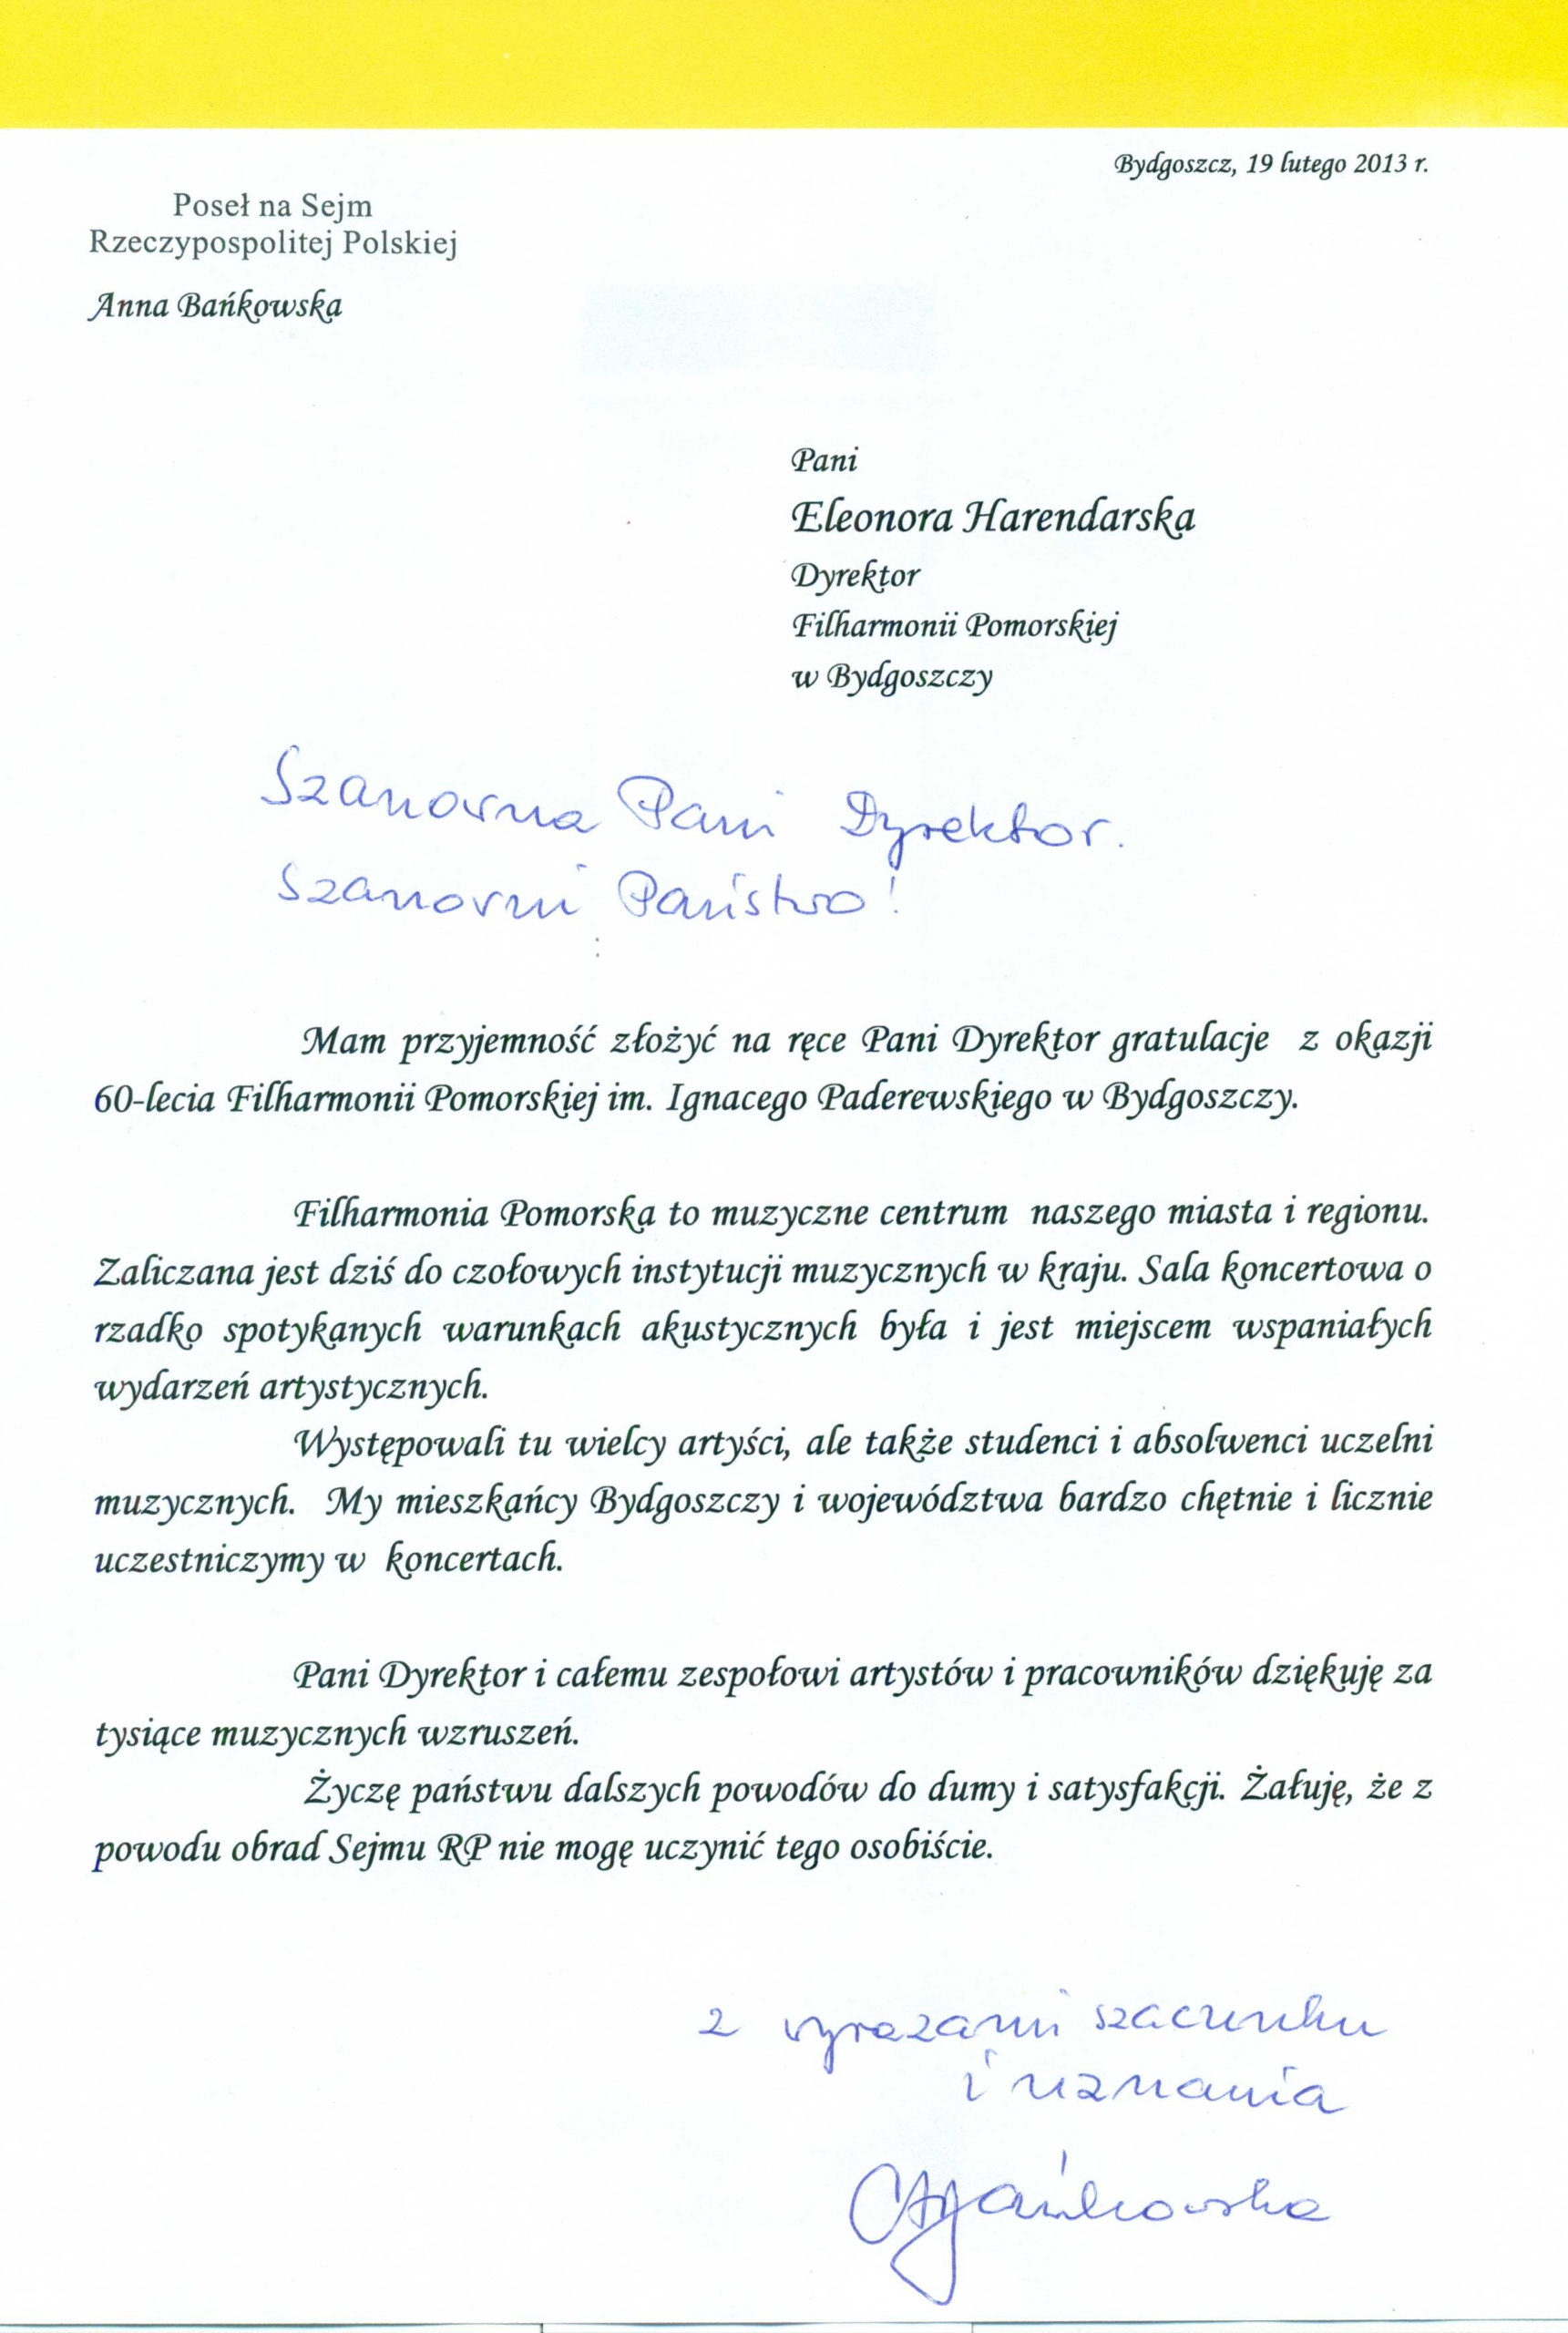 Bydgoszcz, 19 lutego 2013 r.
Poseł na Sejm
Rzeczypospolitej Polskiej
Anna Bańkowska
Pani
Eleonora Harendarska
Dyrektor
Filharmonii Pomorskiej
w Bydgoszczy
Szanowna Pani Dyrektor.
Szanowni Państwo!
Mam przyjemność złożyć na ręce Pani Dyrektor gratulacje z okazji
60-lecia Filharmonii Pomorskiej im. Ignacego Paderewskiego w Bydgoszczy.
Filharmonia Pomorska to muzyczne centrum naszego miasta i regionu.
Zaliczana jest dziś do czołowych instytucji muzycznych w kraju. Sala koncertowa o
rzadko spotykanych warunkach akustycznych była i jest miejscem wspaniałych
wydarzeń artystycznych.
Występowali tu wielcy artyści, ale także studenci i absolwenci uczelni
muzycznych. My mieszkańcy Bydgoszczy i województwa bardzo chętnie i licznie
uczestniczymy w koncertach.
Pani Dyrektor i całemu zespołowi artystów i pracowników dziękuję za
tysiące muzycznych wzruszeń.
Życzę państwu dalszych powodów do dumy i satysfakcji. Żałuję, że z
powodu obrad Sejmu RP nie mogę uczynić tego osobiście.
z wyrazami szacunku
i uznania
ABańkowska